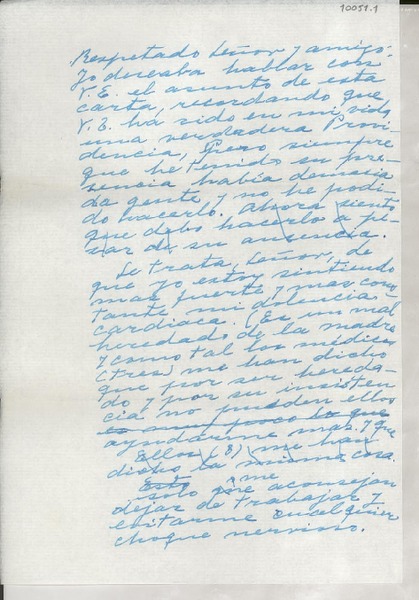 10051.1
Respetado Señor y amigo:
Yo deseaba hablar con
V.E. el asunto de esta
carta, recordando que
V.E. ha sido en mi vida
una verdadera Provi-
dencia, Pero siempre
que he tenido su pre-
sencia había demasia
da gente y no he podi-
do hacerlo. Ahora siento
que debo hacerlo a pe-
sar de su ausencia.
Se trata, Señor, de
que yo estoy sintiendo
mas fuerte y mas cons
tante mi dolencia
cardiaca. (Es un mal
heredado de la madre
y como tal los médicos
(tres) me han dicho
que por ser hereda-
do y por su insisten
cia, no pueden ellos
es muy poco lo que
ayudarme mas. y que
Ellos (3) me han
dicho la misma cosa.
Esto me
solo me aconsejan
dejar de trabajar y
evitarme cualquier
choque nervioso.